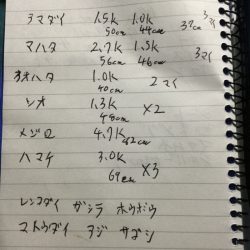 マダイ 1.5K 1.0K 3マイ
50cm 44cm 37cm
マハタ 2.7K 1.3K 3マイ
56cm 46cm
オオハタ 1.0K 2マイ
40cm
シオ 1.3K ×2
48cm
メジロ 4.7K
82cm
ハマチ 3.0K ×3
69cm
レンコダイ ガシラ ホウボウ
マトウダイ アジ サゴシ